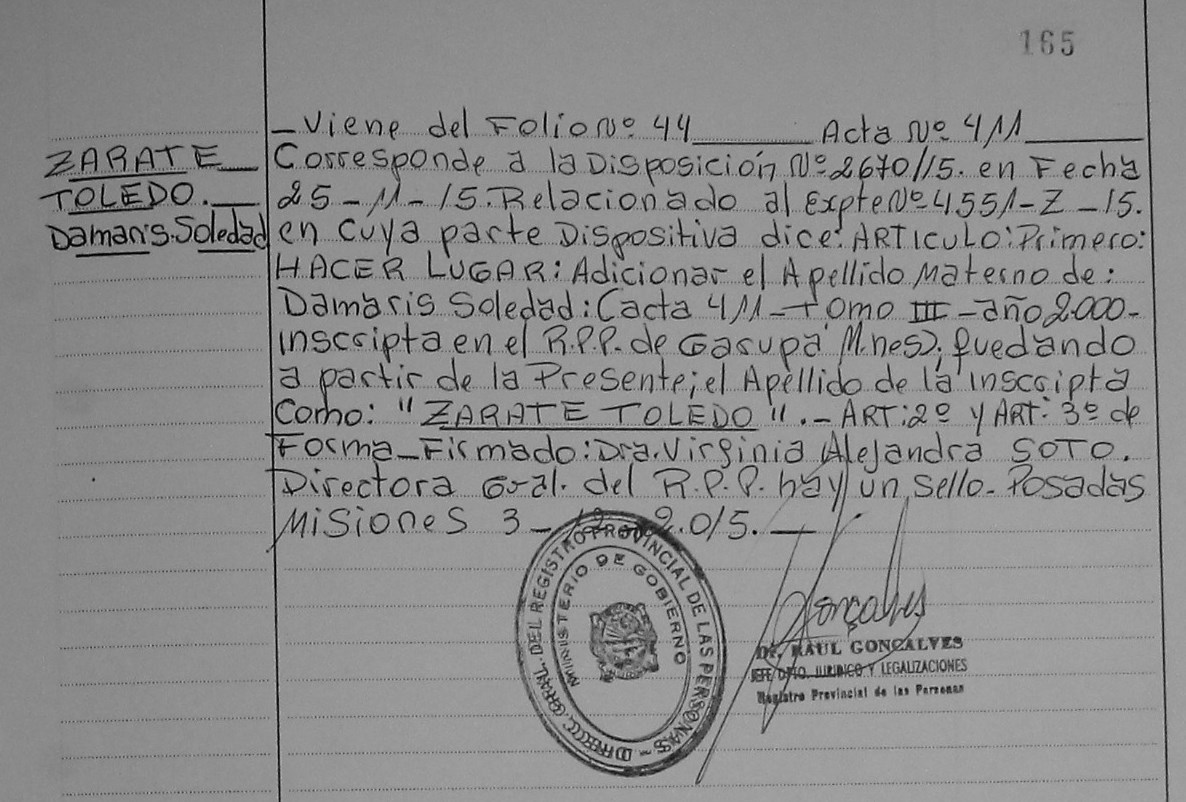 165
_ Viene del Folio Nº 44 ______ Acta Nº 411 ______
ZARATE __
TOLEDO. __
Damaris. Soledad
Corresponde a la Disposición Nº 2670/15. en Fecha
25 - 11 - 15. Relacionado al Expte Nº 4551 - Z - 15.
en cuya parte Dispositiva dice: ARTICULO: Primero:
HACER LUGAR: Adicionar el Apellido Materno de:
Damaris Soledad: (acta 411 - Tomo III - año 2.000 -
inscripta en el R.P.P. de Garupá Mnes); quedando
a partir de la Presente; el Apellido de la inscripta
Como: "ZARATE TOLEDO". - ART: 2º y ART: 3º de
Forma _ Firmado: Dra. Virginia Alejandra SOTO.
Directora Gral. del R.P.P. hay un sello - Posadas
Misiones 3 - 12 - 2.015. __
DIRECCC. GRAL. DEL REGISTRO PROVINCIAL DE LAS PERSONAS -
MINISTERIO DE GOBIERNO
Gonçalves
Dr. RAUL GONCALVES
JEFE DPTO. JURIDICO Y LEGALIZACIONES
Registro Provincial de las Personas